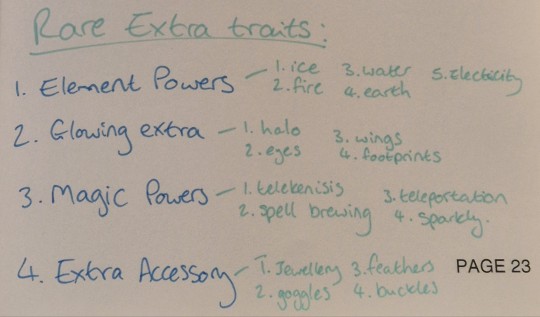 Rare Extra traits:
1. Element Powers - 1. ice 3. water 5. Electicity
2. fire 4. earth
2. Glowing extra - 1. halo 3. wings
2. eyes 4. footprints
3. Magic Powers - 1. telekenisis 3. teleportation
2. spell brewing 4. Sparkly.
4. Extra Accessory - 1. Jewellery 3. feathers PAGE 23
2. goggles 4. buckles